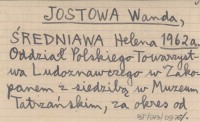 JOSTOWA Wanda,
ŚREDNIAWA Helena 1962a.
Oddział Polskiego Towarzyst-
wa Ludoznawczego w Zako-
panem z siedzibą w Muzeum
Tatrzańskim, za okres od